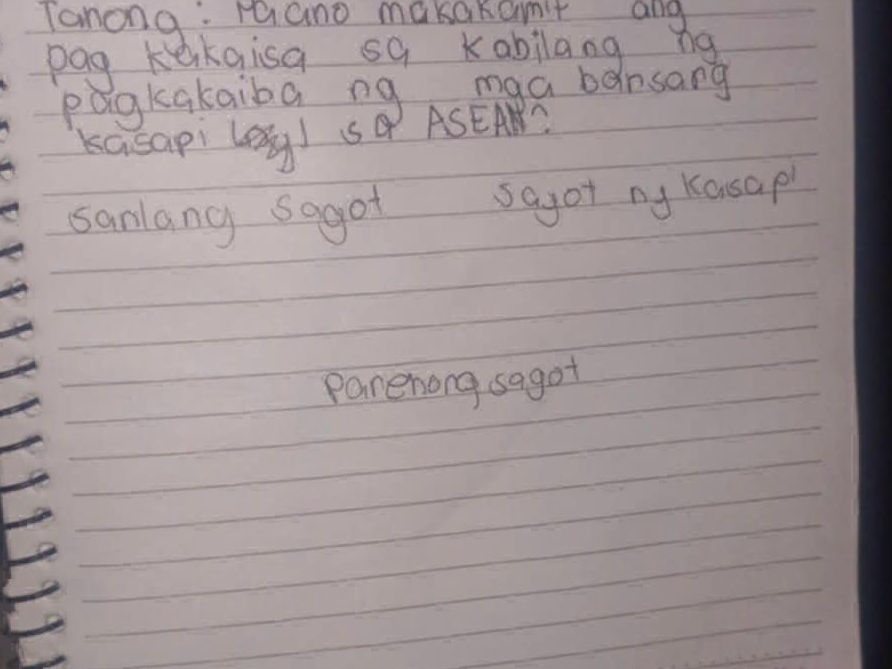 Tanong: Paano makakamit ang
pag kakaisa sa kabilang ng
pagkakaiba ng mga bansang
kasapi sa ASEAN?
sarilang sagot sagot ng kasapi
parehong sagot